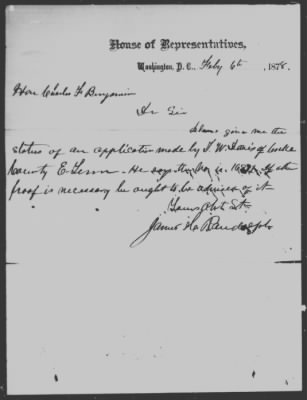 House of Representatives,
Washington, D. C., Feby 6th, 1878.
Hon Charles F Benjamin
Dr Sir
Please give me the
status of an application made by J. W. Davis of Cocke
County E. Tenn. He says the No is If other
proof is necessary he ought to be advised of it
Yours Obt St
James H. Randolph